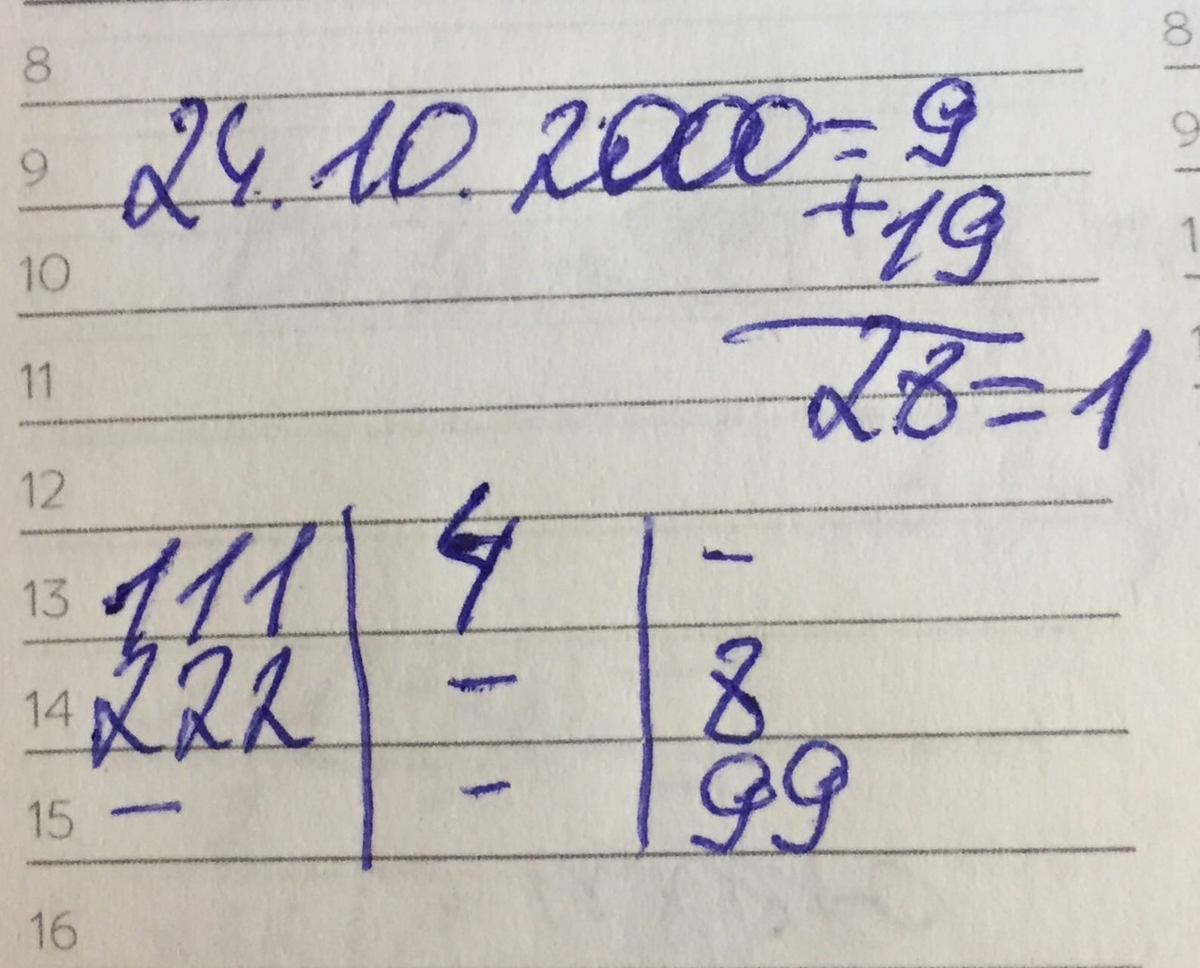 8 8
24.10.2000 = 9
9 9
+19
10 1
28 = 1
11 1
12
13 111 | 4 | -
14 222 | - | 8
15 - | - | 99
16